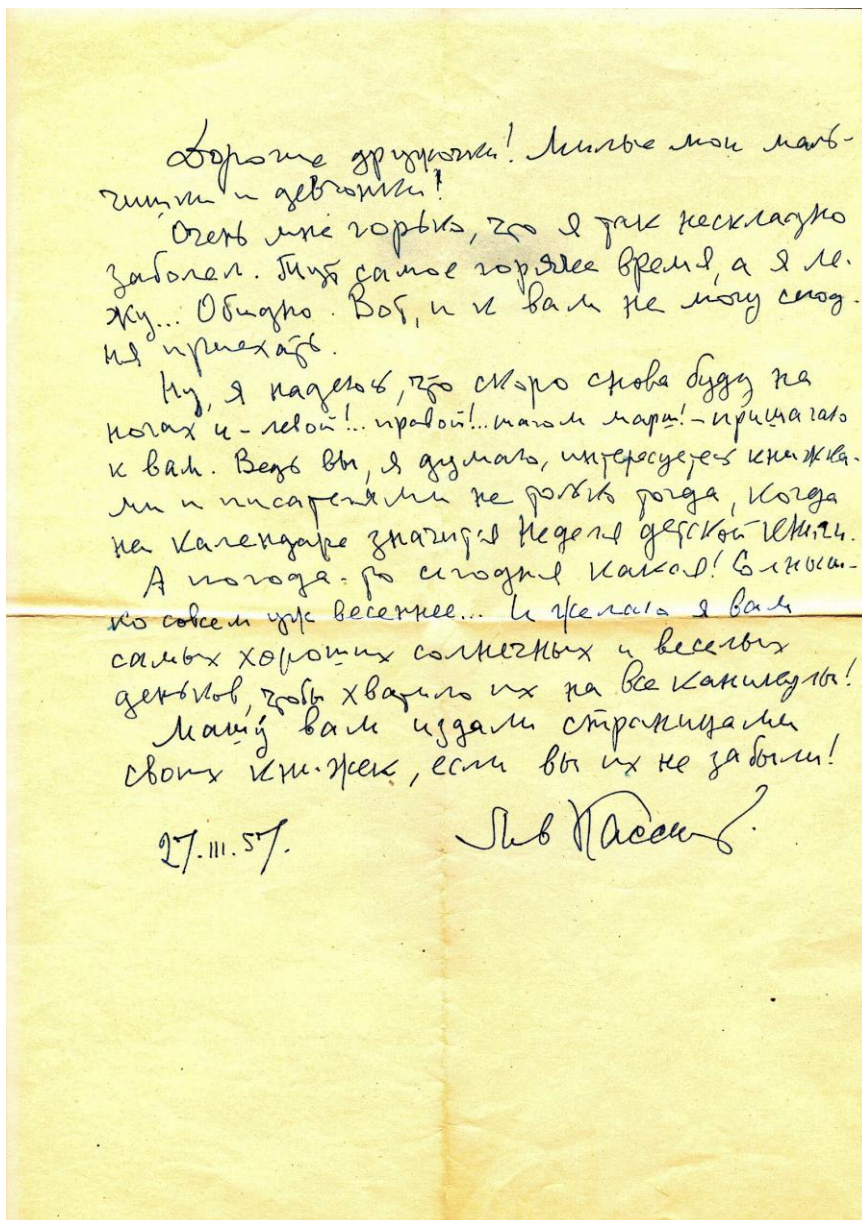 Дорогие дружочки! Милые мои маль-
чишки и девчонки!
Очень мне горько, что я так нескладно
заболел. Тут самое горячее время, а я ле-
жу... Обидно. Вот, и к вам не могу сегод-
ня приехать.
Ну, я надеюсь, что скоро снова буду на
ногах и - левой!.. правой!.. шагом марш! - пришагаю
к вам. Ведь вы, я думаю, интересуетесь книжка-
ми и писателями не только тогда, когда
на календаре значится Неделя детской книги.
А погода-то сегодня какая! Солныш-
ко совсем уж весеннее... И желаю я вам
самых хороших солнечных и веселых
деньков, чтобы хватило их на все каникулы!
Машу́ вам издали страницами
своих книжек, если вы их не забыли!
27.III.57.
Лев Кассиль.